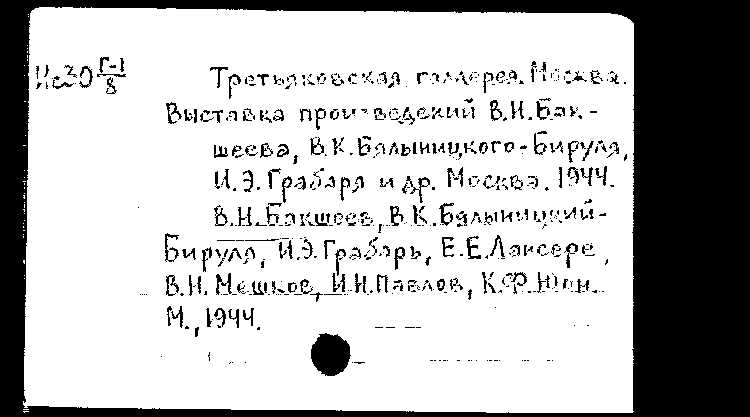 Ис30 Г-1/8 Третьяковская галлерея. Москва.
Выставка произведений В.Н.Бак-
шеева, В.К.Бялыницкого-Бируля,
И.Э.Грабаря и др. Москва. 1944.
В.Н.Бакшеев, В.К.Бялыницкий-
Бируля, И.Э.Грабарь, Е.Е.Лансере,
В.Н.Мешков, И.Н.Павлов, К.Ф.Юон.
М., 1944.